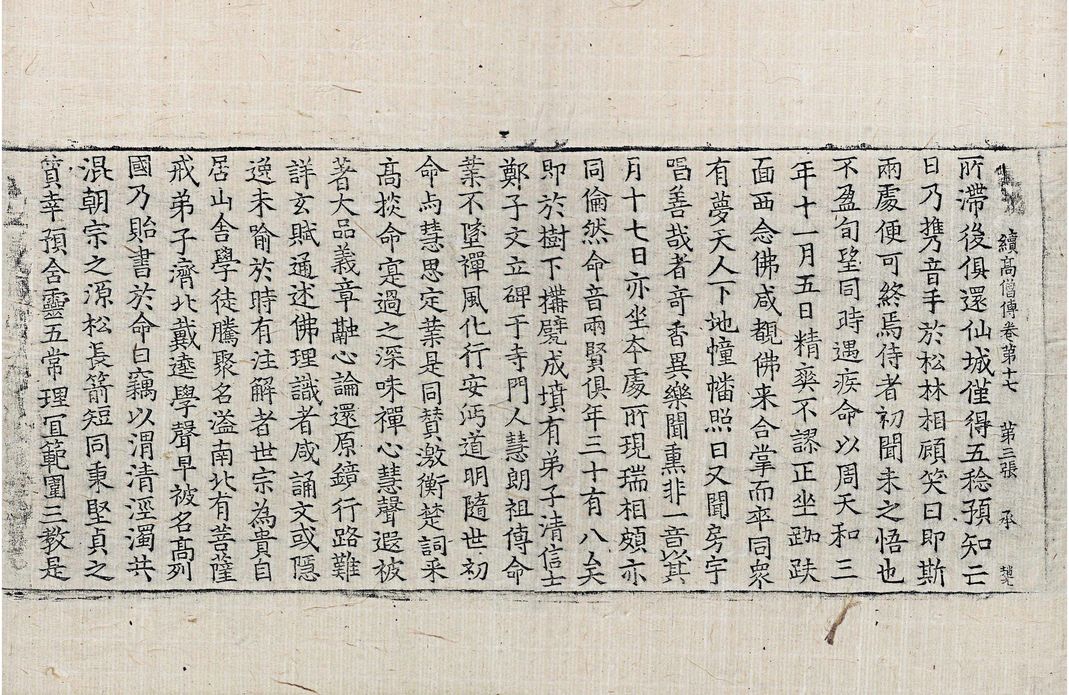 續高僧傳卷第十七　第三張　承
所滯後俱還仙城僅得五稔預知亡
日乃攜音手於松林相顧笑曰即斯
兩處便可終焉侍者初聞未之悟也
不盈旬望同時遇疾命以周天和三
年十一月五日精爽不謬正坐跏趺
面西念佛咸覩佛来合掌而卒同衆
有夢天人下地幢幡照日又聞房宇
唱善哉者奇香異樂聞熏非一音以其
月十七日亦坐本處所現瑞相頗亦
同倫然命音兩賢俱年三十有八矣
即於樹下構甓成墳有弟子清信士
鄭子文立碑于寺門人慧朗祖傳命
業不墜禪風化行安沔道明隨世初
命与慧思定業是同贊激衡楚詞采
高掞命寔過之深味禪心慧聲遐被
著大品義章融心論還原鏡行路難
詳玄賦通述佛理識者咸誦文或隱
逸未喻於時有注解者世宗為貴自
居山舍學徒騰聚名溢南北有菩薩
戒弟子濟北戴逵學聲早被名高列
國乃貽書於命曰竊以渭清涇濁共
混朝宗之源松長箭短同秉堅貞之
質幸預含靈五常理宜範圍三教是